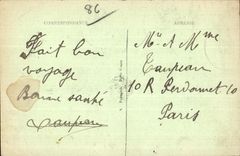 86
CORRESPONDANCE
ADRESSE
Fait bon
voyage
Bonne santé
Taupeau
Mr & Mme
Taupeau
10 R Perdonnet 10
Paris